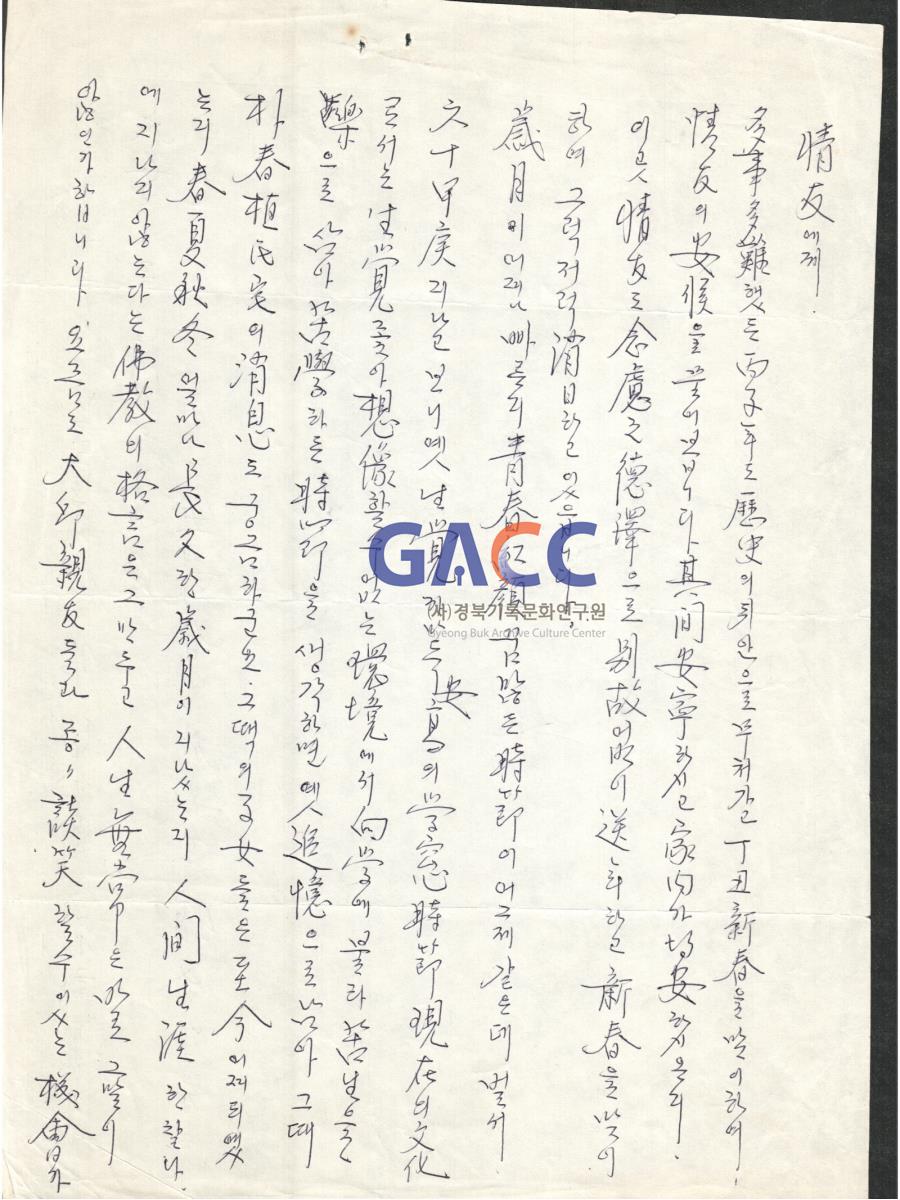 情友에게.
多事多難했든 丙子年도 歷史의 뒤안으로 무쳐갔고 丁丑新春을 맞이하여
情友의 安候을 물어보부니다 其間 安寧하시고 家內가 均安하시온지.
이곳 情友도 念慮之德澤으로 別故없이 送年하고 新春을 맞이
하여 그럭저럭 消日하고 있읍니다.
歲月이 어찌나 빠른지 青春紅顔 꿈 많든 時節이 어그제 같은데 벌서
六十甲 지나고 보니 옛 生覺 安 의 学窓時節 現在의 文化
로서는 生覺좇아 想像할수 없는 環境에서 向学에 불타 苦生을
樂으로 삼아 苦學하든 時節을 생각하면 옛 追憶으로 남아 그때
朴春植氏宅의 消息도 궁금하군요. 그때의 子女들은 至今 어찌되였
는지 春夏秋冬 얼마나 長久한 歲月이 지났는지 人間生涯 한찰나
에 지나지 않는다는 佛教의 格言은 그만두고 人生無常은 바로 그말이
않인가 합니다 요즈음도 大邱 親友들과 종々 談笑 할수 있는 機會가
GACC
(사)경북기록문화연구원
Gyeong Buk Archive Culture Center